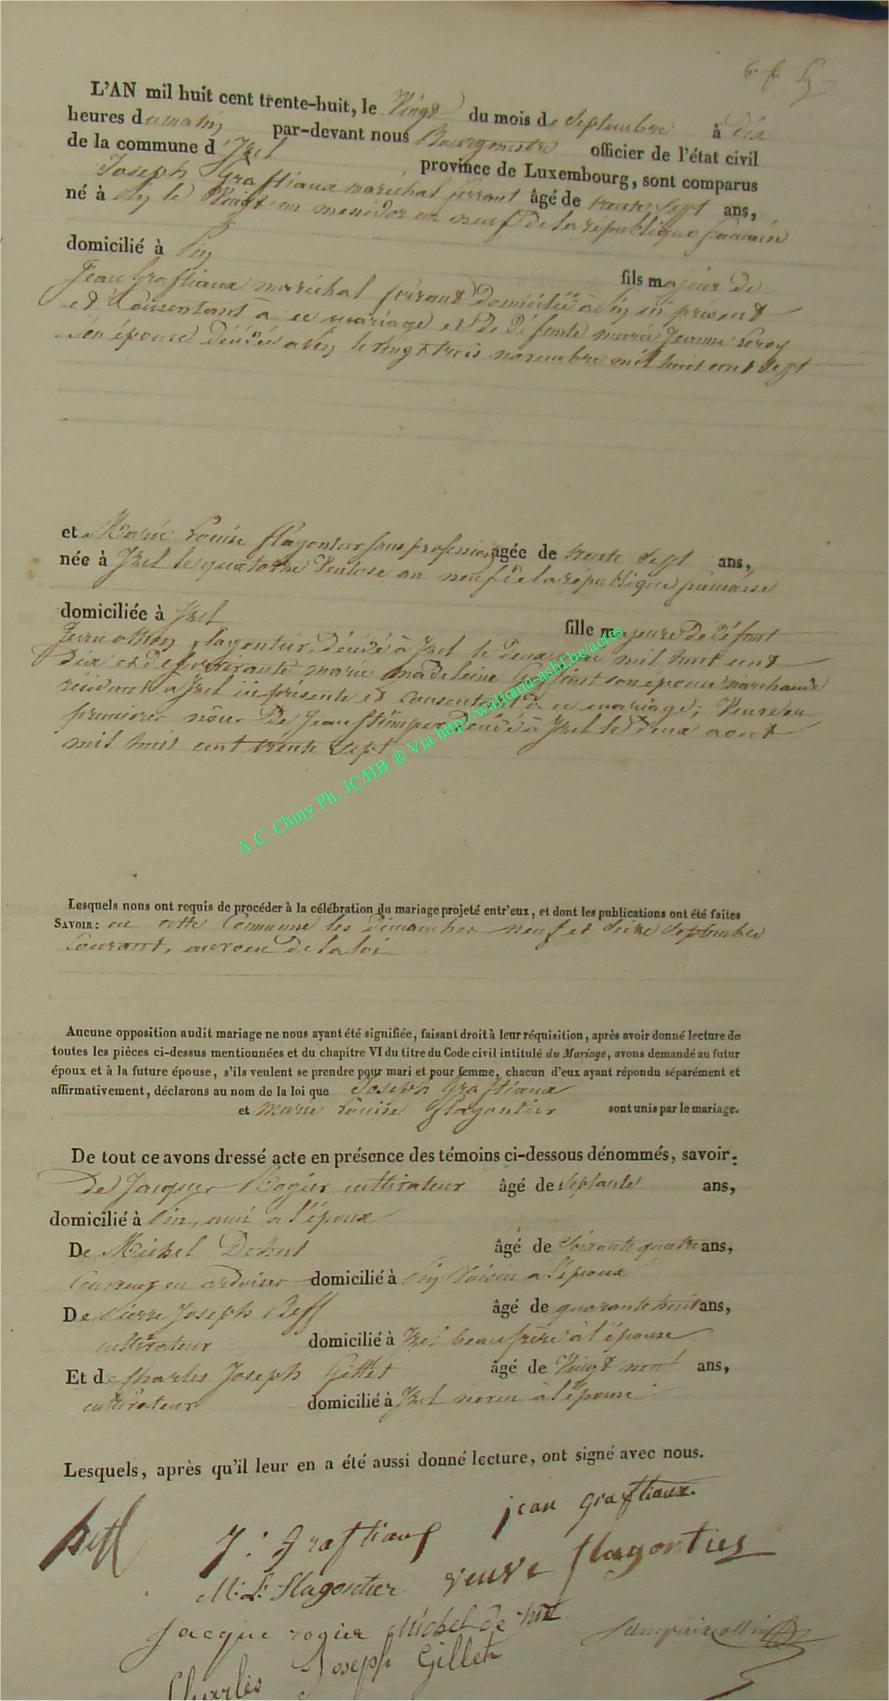 L'AN mil huit cent trente-huit, le Vingt du mois de Septembre à dix
heures du matin par-devant nous Bourgmestre officier de l'état civil
de la commune d'Izel province de Luxembourg, sont comparus
Joseph Graftiaux maréchal ferrant âgé de trente sept ans,
né à Pin le Vingt un messidor an neuf de la république francaise
domicilié à Pin fils majeur de
Jean Graftiaux maréchal ferrant domicilié à Pin ici présent
et Consentant à ce mariage et de Défunte marie Jeanne Leroy
son épouse décédée à Pin le vingt trois novembre mil huit cent sept
et Marie Louise Flagontier sans profession agée de trente sept ans,
née à Izel le quatorze Ventose an neuf de la république francaise
domiciliée à Izel fille majeure de défunt
Flagontier, décédé à Izel le deux mil huit cent
dix et de marie madeleine son épouse marchande
résidant à Izel ici présente et consentante à ce mariage; Veuve en
premieres nôces de Jean décédé à Izel le deux aout
mil huit cent trente sept
A.C. Chiny Ph. JC/HB ® Via http://wallonia-asbl.be/actes
Lesquels nous ont requis de procéder à la célébration du mariage projeté entr'eux, et dont les publications ont été faites
SAVOIR: en cette Commune les dimanches neuf et seize septembre
Courant, au voeu de la loi
Aucune opposition audit mariage ne nous ayant été signifiée, faisant droit à leur réquisition, après avoir donné lecture de
toutes les pièces ci-dessus mentionnées et du chapitre VI du titre du Code civil intitulé du Mariage, avons demandé au futur
époux et à la future épouse, s'ils veulent se prendre pour mari et pour femme, chacun d'eux ayant répondu séparément et
affirmativement, déclarons au nom de la loi que Joseph Graftiaux
et Marie Louise Flagontier sont unis par le mariage.
De tout ce avons dressé acte en présence des témoins ci-dessous dénommés, savoir:
De Jacques Rogier cultivateur âgé de septante ans,
domicilié à Pin, ami à l'époux
De Michel Dehut âgé de soixante quatre ans,
Couvreur en ardoises domicilié à Pin Voisin à l'époux
De Pierre Joseph Reff âgé de quarante huit ans,
cultivateur domicilié à Izel beau frère à l'épouse
Et de Charles Joseph Gillet âgé de Vingt neuf ans,
cultivateur domicilié à Izel neveu à l'épouse
Lesquels, après qu'il leur en a été aussi donné lecture, ont signé avec nous.
Reff J: Graftiaux jean graftiaux.
M: L: Flagontier veuve flagontier
Jacque rogier Michel de hut
Charles Joseph Gillet